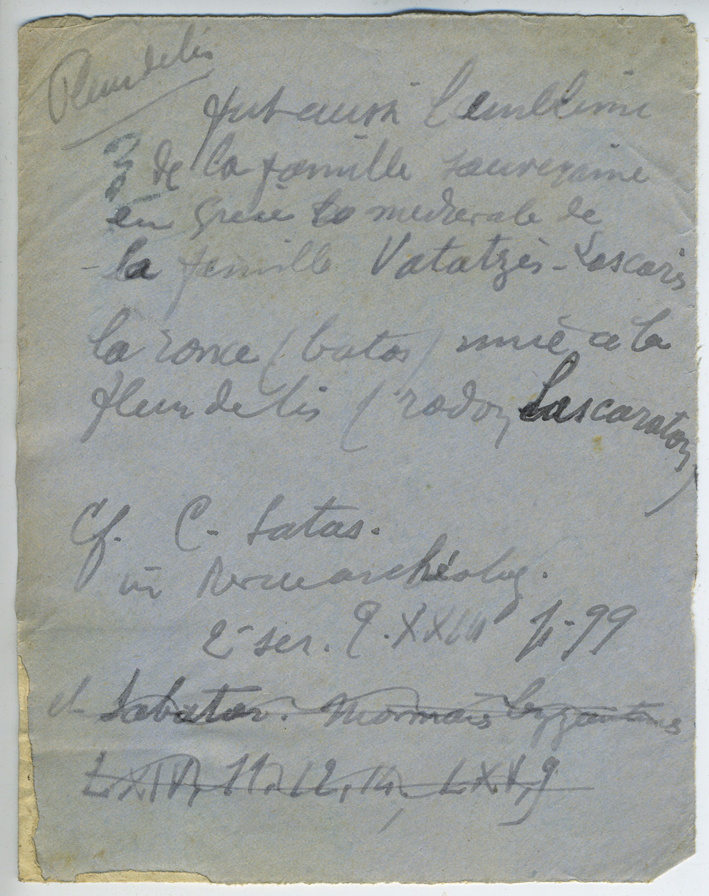 Fleur de lis
fut aussi l'emblème
de la famille souveraine
en Grèce la médiévale de
- la famille Vatatzès - Lascaris
la ronce (batos) unie à la
fleur de lis (rodon Lascaraton)
Cf. C. Satas.
in Revue archéolog.
2e ser. T. XXXIII p. 99
et Sabatier. Monnais byzantines
LXIV, 11, 12, 14. LXV, 9